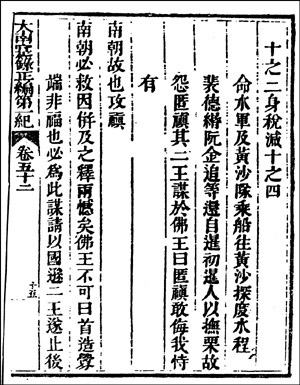 十之二身稅減十之四
命水軍及黃沙隊乘船往黃沙探度水程
裴德縉阮企追等還自暹初暹人以撫栗故
怨匿禛其二王謀於佛王曰匿禛敢侮我恃
有
南朝故也攻禛
南朝必救因併及之釋兩憾矣佛王不可曰首造釁
端非福也必為此謀請以國遜二王遂止後
大南寔錄正編第一紀 卷五十二
十五